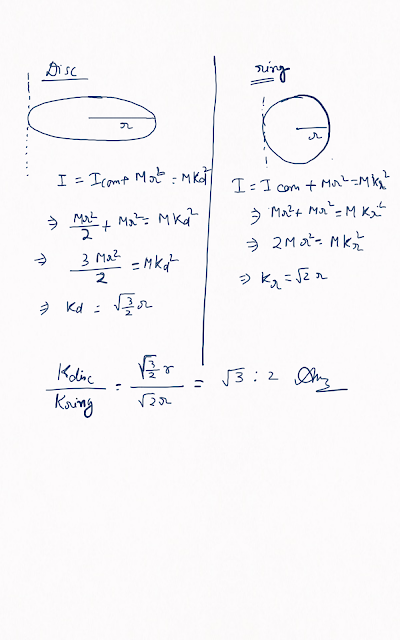 Disc
r
I = Icom + Mr² = MKd²
⇒ Mr²/2 + Mr² = MKd²
⇒ 3Mr²/2 = MKd²
⇒ Kd = √(3/2) r
ring
r
I = Icom + Mr² = MKr²
⇒ Mr² + Mr² = MKr²
⇒ 2Mr² = MKr²
⇒ Kr = √2 r
Kdisc/Kring = √(3/2) r/√2 r = √3 : 2 Ans